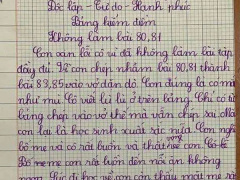 Độc lập - Tự do - Hạnh phúc
Bảng kiểm điểm
Không làm bài 80,81
Con xin lỗi cô vì đã không làm bài tập
đầy đủ. Vì con chép nhầm bài 80,81 thành
bài 83,85 vào vở dặn dò. Con đúng là có mắt
như mù. Cô viết lù lù ở trên bảng. Chỉ có từ
bảng chép vào vở thế mà vẫn chép sai mà
con lại là học sinh xuất sắc nữa. Con nghĩ
bố mẹ và cô rất buồn và thất vọng con. Có lẽ
Bố mẹ em còn rất buồn đến nỗi ăn không
ngon. Lúc đi học về con còn thấy mặt mẹ